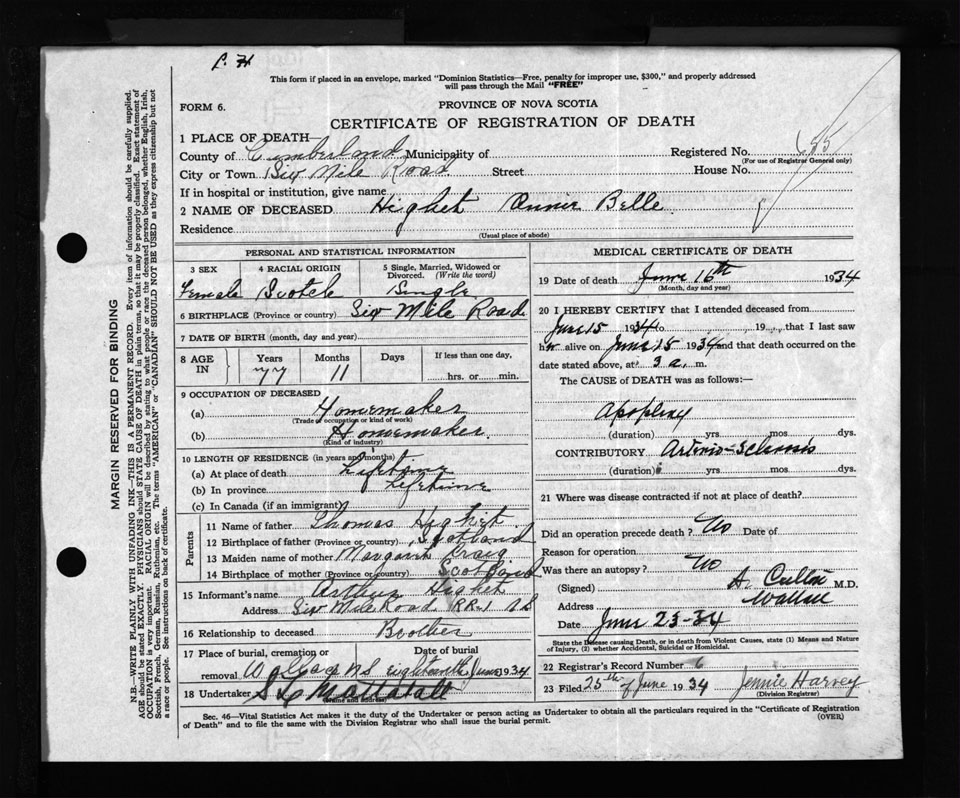 This form if placed in an envelope, marked "Dominion Statistics—Free, penalty for improper use, $300," and properly addressed
will pass through the Mail "FREE"
FORM 6.
PROVINCE OF NOVA SCOTIA
CERTIFICATE OF REGISTRATION OF DEATH
1 PLACE OF DEATH—
County of Cumberland Municipality of
Registered No.
(For use of Registrar General only)
City or Town Six Mile Road Street House No.
If in hospital or institution, give name
2 NAME OF DECEASED Highet Belle
Residence
(Usual place of abode)
PERSONAL AND STATISTICAL INFORMATION
3 SEX
4 RACIAL ORIGIN
5 Single, Married, Widowed or Divorced. (Write the word)
Female Scotch Single
6 BIRTHPLACE (Province or country) Six Mile Road
7 DATE OF BIRTH (month, day and year)
8 AGE IN Years Months Days If less than one day,
77 11 hrs. or min.
9 OCCUPATION OF DECEASED
(a) Homemaker
(Trade or occupation or kind of work)
(b) Homemaker.
(Kind of industry)
10 LENGTH OF RESIDENCE (in years and months)
(a) At place of death Lifetime
(b) In province Lifetime
(c) In Canada (if an immigrant)
Parents
11 Name of father Thomas Highet
12 Birthplace of father (Province or country) Scotland
13 Maiden name of mother Margaret Craig
14 Birthplace of mother (Province or country) Scotland
15 Informant's name Arthur Highet
Address Six Mile Road RR1 NS
16 Relationship to deceased Brother
17 Place of burial, cremation or removal Wallace NS
Date of burial
eighteenth June 1934
18 Undertaker Mattatall
(Name and address)
MEDICAL CERTIFICATE OF DEATH
19 Date of death June 16th 1934
(Month, day and year)
20 I HEREBY CERTIFY that I attended deceased from
June 15 1934 to , 19 , that I last saw
h er alive on June 15 1934 and that death occurred on
date stated above, at 3 a. m.
The CAUSE OF DEATH was as follows:—
Apoplexy
(duration) yrs mos dys.
CONTRIBUTORY Arterio-Sclerosis
(duration) yrs mos dys.
21 Where was disease contracted if not at place of death?
Did an operation precede death? No Date of
Reason for operation
Was there an autopsy? No
(Signed) M.D.
Address Wallace
Date June 23-34
State the Disease causing Death, or in death from Violent Causes, state (1) Means and Nature
of Injury, (2) whether Accidental, Suicidal or Homicidal.
22 Registrar's Record Number 6
23 Filed 25th of June 1934 Jennie Harvey
(Division Registrar)
Sec. 46—Vital Statistics Act makes it the duty of the Undertaker or person acting as Undertaker to obtain all the particulars required in the "Certificate of Registration
of Death" and to file the same with the Division Registrar who shall issue the burial permit. (OVER)
MARGIN RESERVED FOR BINDING
N.B.—WRITE PLAINLY WITH UNFADING INK—THIS IS A PERMANENT RECORD. Every item of information should be carefully supplied.
AGE should be stated EXACTLY. PHYSICIANS should STATE CAUSE OF DEATH in plain terms, so that it may be properly classified. Exact statement of
OCCUPATION is very important. RACIAL ORIGIN will be described by stating to what people or race the deceased person belonged, whether English, Irish,
Scottish, French, German, Russian, Ruthenian, etc. The terms "AMERICAN" or "CANADIAN" SHOULD NOT BE USED as they express citizenship but not
a race or people. See instructions on back of certificate.